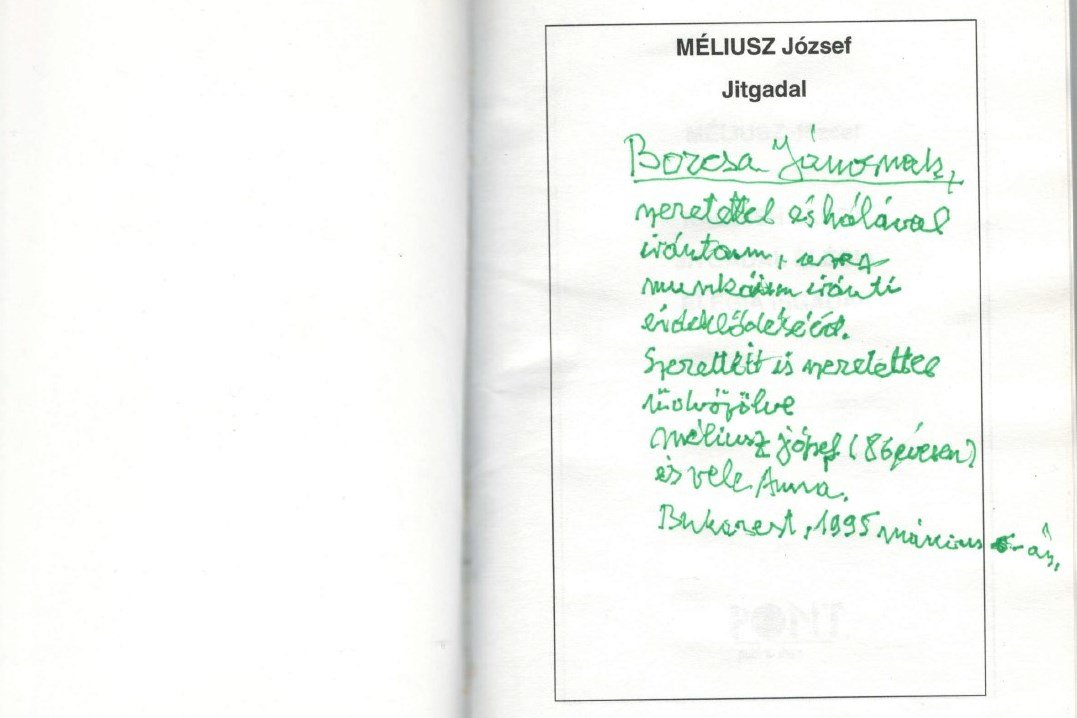 MÉLIUSZ József
Jitgadal
Borcsa Jánosnak,
szeretettel és hálával
irántam,
munkáim iránti
érdeklődéséért.
Szeretteit is szeretettel
üdvözölve
Méliusz József (86 évesen)
és vele Anna.
Bukarest, 1995 március 6-án.